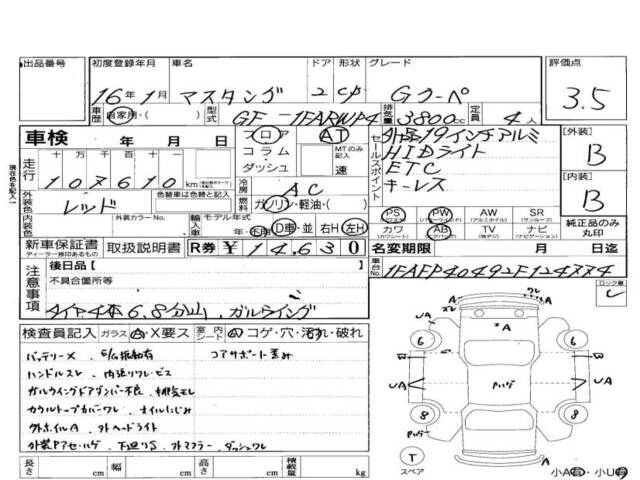 出品番号 初度登録年月 車名 ドア 形状 グレード 評価点
16年1月 マスタング 2 cp Gクーペ 3.5
車歴 自家用・( ) 型式 GF-1FARWP4 排気量 3800cc 定員 4人
車検 年 月 日
フロア コラム・ ダッシュ
AT
MTのみ記入 速
セールスポイント
外品19インチアルミ
HIDライト
ETC
キーレス
[外装] B
[内装] B
現在色を記入
走行 十 万 千 百 十 一
107610 km
冷房 AC
燃料 ガソリン・軽油・( )
外装色 内装色 レッド
色替車は色替と記入
外装カラーNo.
輸入車 モデル年式 年 D車・並 右H 左H
PS (パワステ) PW (パワーウインド) AW (アルミホイル) SR (サンルーフ)
カワ (カワシート) AB (エアバック) TV (地デジ) ナビ (ナビゲーション)
純正品のみ丸印
新車保証書 ディーラー捺印あるもの 取扱説明書 R券 ¥14,630
名変期限 月 日迄
注意事項
後日品[ ]
不具合箇所等
タイヤ4本6.8分山、ガルウイング
車台No.
ロック車
検査員記入 ガラス A・X要ス 室内 シート A コゲ・穴・汚れ・破れ
バッテリーX
コアサポート歪み
ハンドルスレ、内張りワレ・ビス
ガルウイングドアダンパー不良、排気モレ
カウルトップカバーワレ、オイルにじみ
外ホイルA 外ヘッドライト
下廻りS、外マフラー、ダッシュワレ
長さ cm 幅 cm 高さ cm 積載量 kg
A ワレ
UA A
6 6
W W
UA Pハゲ UA
8 8
Pハゲ A
T
スペア
小A有・小U有